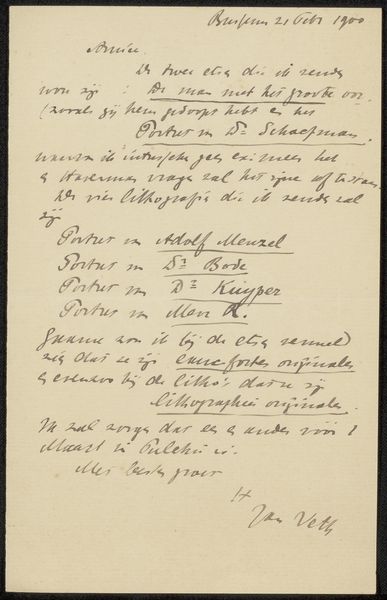 Bussum 21 Febr 1900
Amice.
De twee etsen die ik zende
zijn : De man met het groote oor
(zooals gij hem gedoopt hebt en het
Portret van Dr Schaepman,
waarvan ik intusschen geen ex. meer heb
en Haverman vragen zal het zijne af te staan.
De vier lithografieën die ik zenden zal
zijn
Portret van Adolf Menzel
Portret van Dr Bode
Portret van Dr Kuyper
Portret van Mevr
Gaarne von ik bij de etsen vermeld
dat ze zijn eaux fortes originales
en evenzoo bij de litho's dat ze zijn
lithographies originales.
Ik zal zorgen dat een en ander vóór 1
Maart in Pulchri is.
Met besten groet
Jan Veth